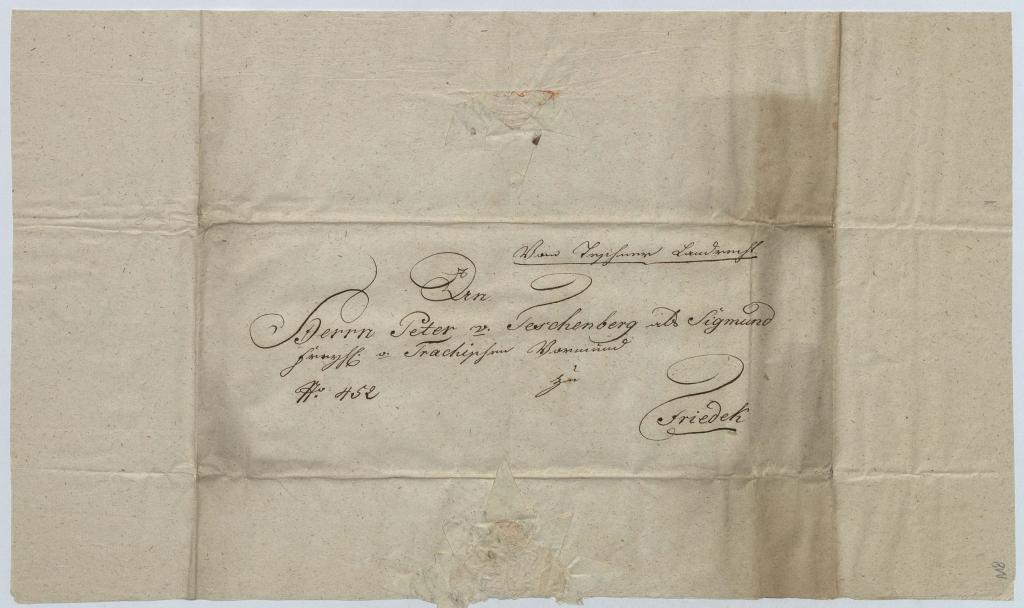 Vom Teschner Landrecht
An
Herrn Peter v. Teschenberg als Sigmund
Freyh. v. Trachischen Vormund
No. 452
zu
Friedek
M8